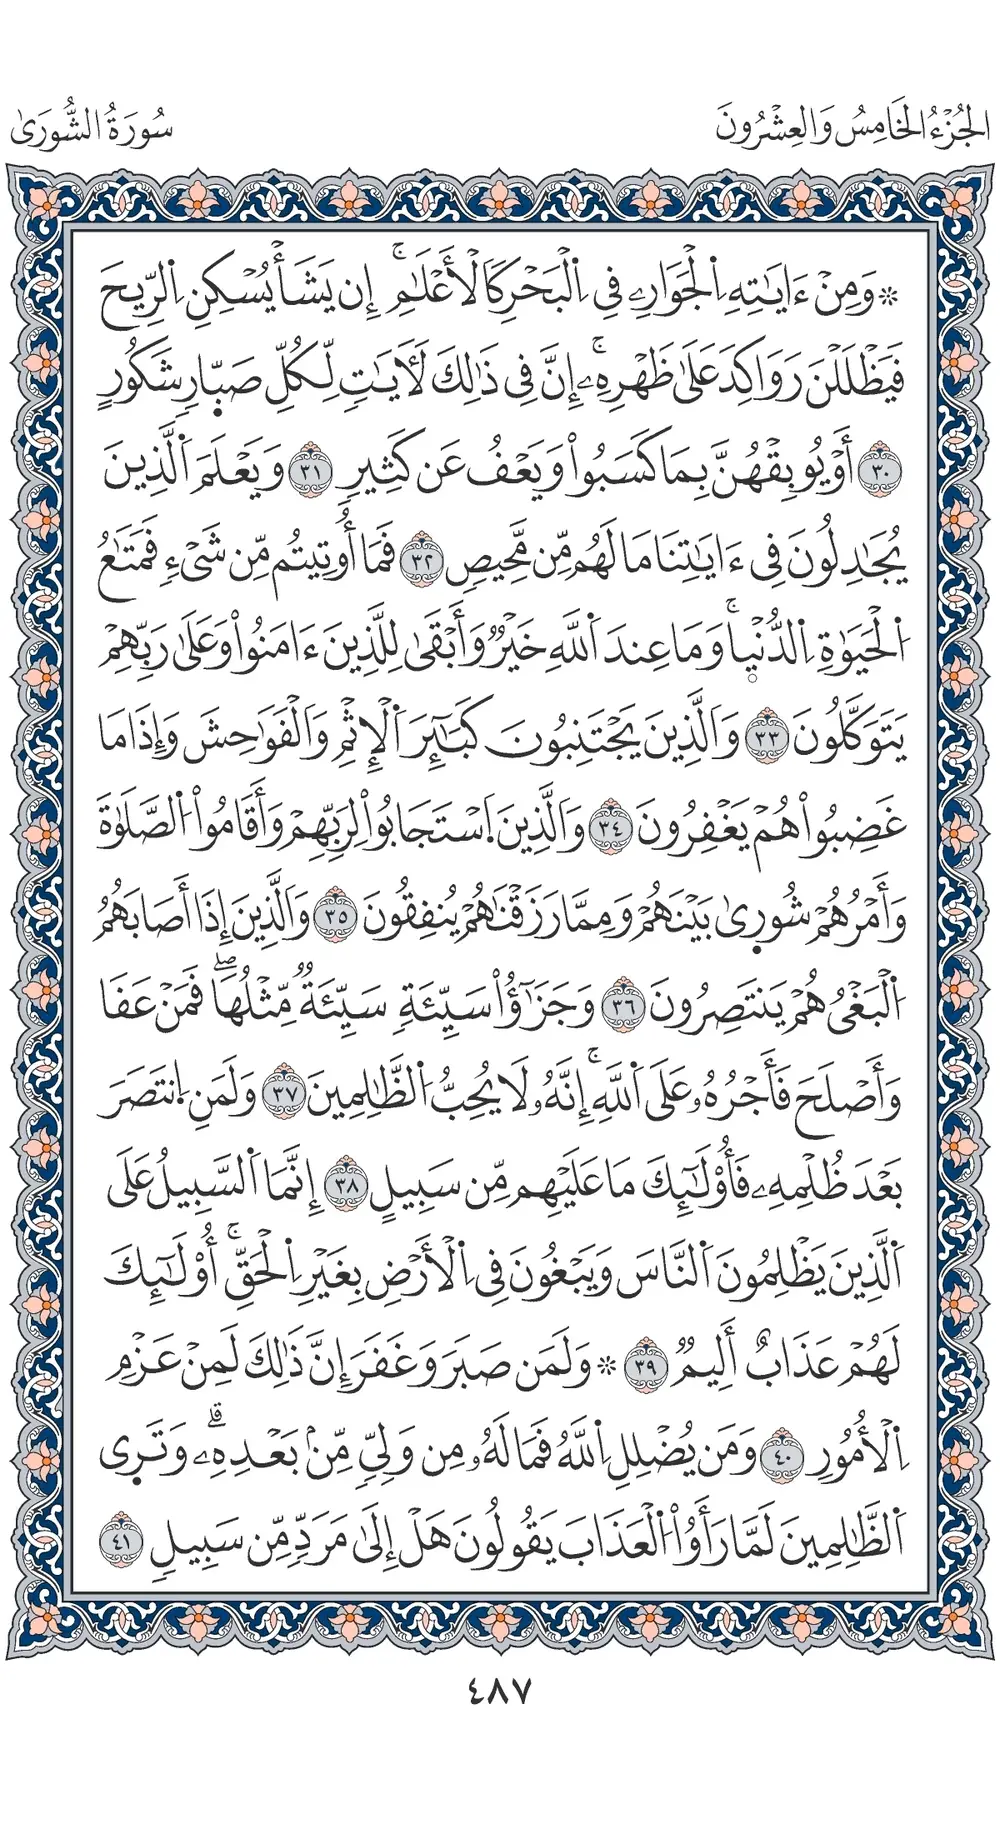 الجُزْءُ الخَامِسُ وَالعِشْرُونَ
سُورَةُ الشُّورَىٰ
۞ وَمِنْ ءَايَٰتِهِ اِ۬لْجَوَارِۦ فِے اِ۬لْبَحْرِ كَالْأَعْلَٰمِۖ إِن يَشَأْ يُسْكِنِ اِ۬لرِّيحَ
فَيَظْلَلْنَ رَوَاكِدَ عَلَىٰ ظَهْرِهِۦٓۚ إِنَّ فِے ذَٰلِكَ لَأٓيَٰتٖ لِّكُلِّ صَبّ۪ارٖ شَكُورٍ
٣٠ أَوْ يُوبِقْهُنَّ بِمَا كَسَبُواْ وَيَعْفُ عَن كَثِيرٖ ٣١ وَيَعْلَمَ اَ۬لَّذِينَ
يُجَٰدِلُونَ فِے ءَايَٰتِنَا مَا لَهُم مِّن مَّحِيصٖ ٣٢ فَمَا أُوتِيتُم مِّن شَےْءٖ فَمَتَٰعُ
اُ۬لْحَيَوٰةِ اِ۬لدُّنْي۪اۚ وَمَا عِندَ اَ۬للَّهِ خَيْرٞ وَأَبْقَىٰ لِلَّذِينَ ءَامَنُواْ وَعَلَىٰ رَبِّهِمْ
يَتَوَكَّلُونَ ٣٣ وَالَّذِينَ يَجْتَنِبُونَ كَبَٰٓئِرَ اَ۬لْإِثْمِ وَالْفَوَٰحِشَ وَإِذَا مَا
غَضِبُواْ هُمْ يَغْفِرُونَ ٣٤ وَالَّذِينَ اَ۪سْتَجَابُواْ لِرَبِّهِمْ وَأَقَامُواْ اُ۬لصَّلَوٰةَ
وَأَمْرُهُمْ شُور۪ىٰ بَيْنَهُمْ وَمِمَّا رَزَقْنَٰهُمْ يُنفِقُونَ ٣٥ وَالَّذِينَ إِذَا أَصَابَهُمُ
اُ۬لْبَغْيُ هُمْ يَنتَصِرُونَ ٣٦ وَجَزَٰٓؤُاْ سَيِّئَةٖ سَيِّئَةٞ مِّثْلُهَاۖ فَمَنْ عَفَا
وَأَصْلَحَ فَأَجْرُهُۥ عَلَى اَ۬للَّهِۚ إِنَّهُۥ لَا يُحِبُّ اُ۬لظَّٰلِمِينَ ٣٧ وَلَمَنِ اِ۪نتَصَرَ
بَعْدَ ظُلْمِهِۦ فَأُوْلَٰٓئِكَ مَا عَلَيْهِم مِّن سَبِيلٍ ٣٨ إِنَّمَا اَ۬لسَّبِيلُ عَلَى
اَ۬لَّذِينَ يَظْلِمُونَ اَ۬لنَّاسَ وَيَبْغُونَ فِے اِ۬لْأَرْضِ بِغَيْرِ اِ۬لْحَقِّۚ أُوْلَٰٓئِكَ
لَهُمْ عَذَابٌ أَلِيمٞ ٣٩ ۞ وَلَمَن صَبَرَ وَغَفَرَ إِنَّ ذَٰلِكَ لَمِنْ عَزْمِ
اِ۬لْأُمُورِ ٤٠ وَمَن يُضْلِلِ اِ۬للَّهُ فَمَا لَهُۥ مِن وَلِيّٖ مِّنۢ بَعْدِهِۦۗ وَتَرَى
اَ۬لظَّٰلِمِينَ لَمَّا رَأَوُاْ اُ۬لْعَذَابَ يَقُولُونَ هَلْ إِلَىٰ مَرَدّٖ مِّن سَبِيلٖ ٤١
٤٨٧